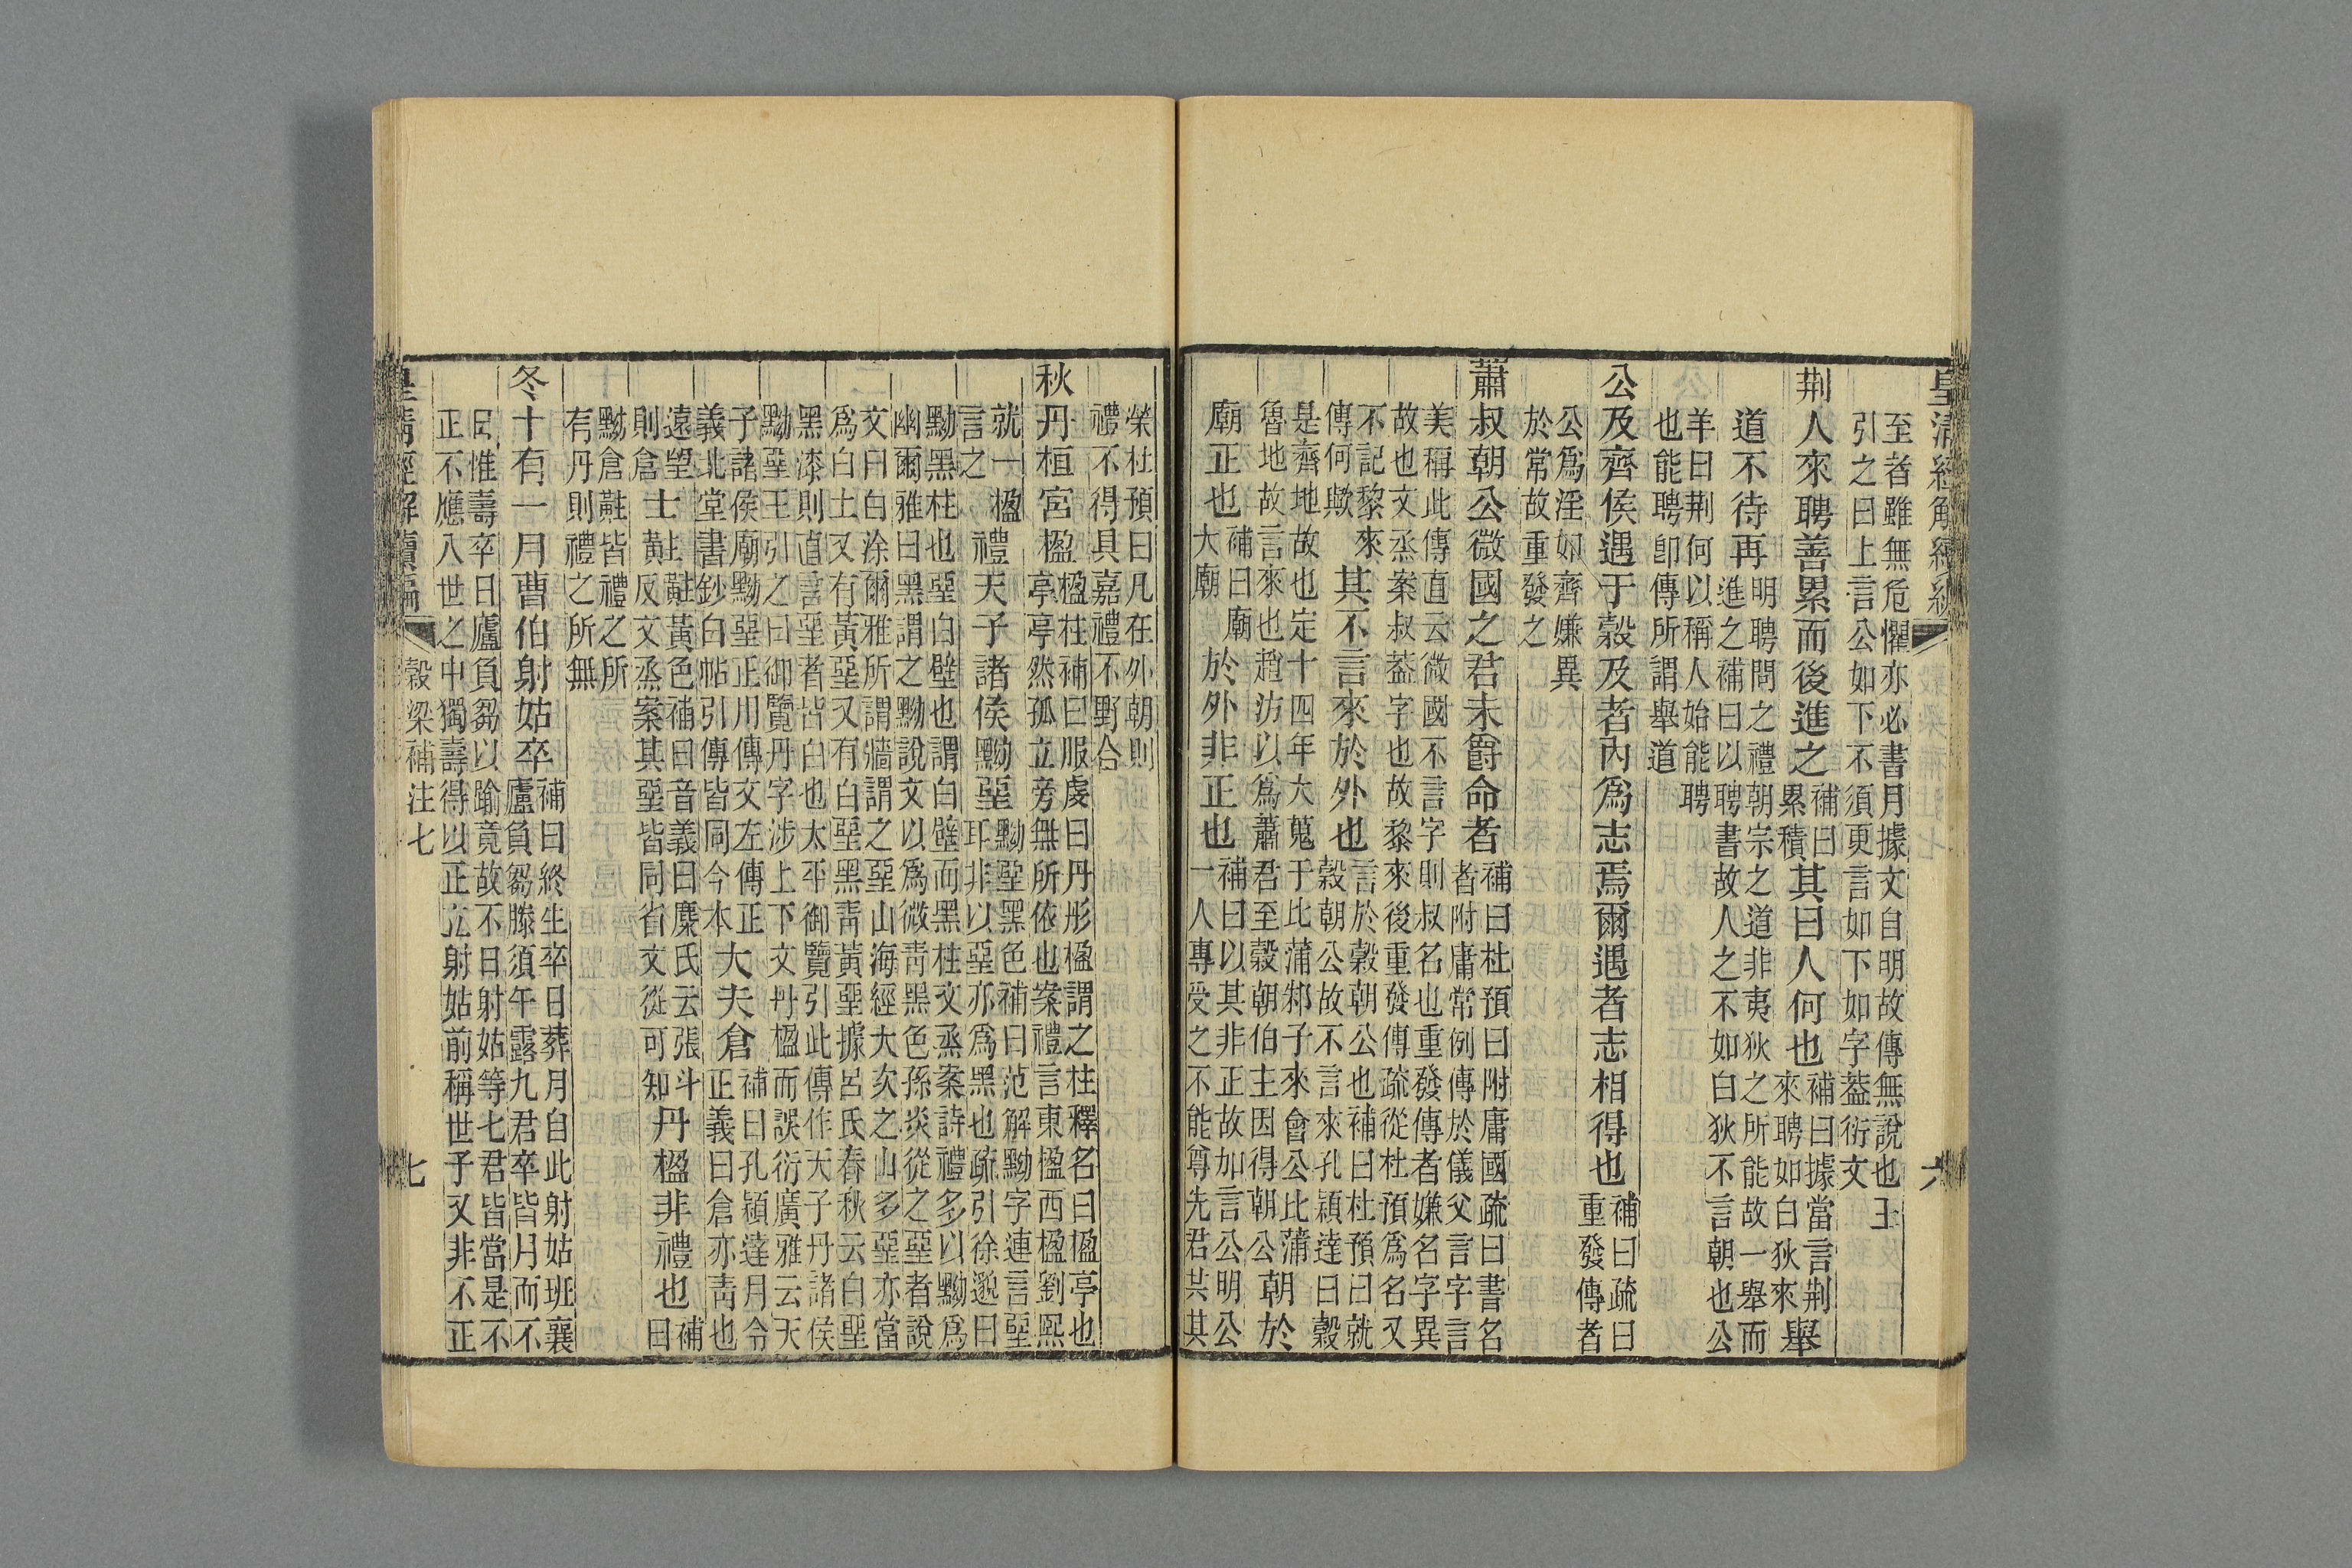 皇清經解續編 六
至者雖無危懼亦必書月據文自明故傳無說也王
引之曰上言公如下不須更言如下如字葢衍文
荆人來聘善累而後進之補曰累積其曰人何也補曰據當言荆來聘如白狄來舉
道不待再明聘問之禮朝宗之道非夷狄之所能故一舉而進之補曰以聘書故人之不如白狄不言朝也公
羊曰荆何以稱人始能聘
也能聘卽傳所謂舉道
公及齊侯遇于穀及者內爲志焉爾遇者志相得也補曰疏曰重發傳者
公爲淫如齊嫌異
於常故重發之
蕭叔朝公微國之君未爵命者補曰杜預曰附庸國疏曰書名者附庸常例傳於儀父言字言
美稱此傳直云微國不言字則叔名也重發傳者嫌名字異
故也文烝案叔葢字也故黎來後重發傳疏從杜預爲名又
不記黎來傳何歟其不言來於外也言於穀朝公也補曰杜預曰就穀朝公故不言來孔穎達曰穀
是齊地故也定十四年大蒐于比蒲邾子來會公比蒲魯地故言來也趙汸以爲蕭君至穀朝伯主因得朝公朝於
廟正也補曰廟大廟於外非正也補曰以其非正故加言公明公一人專受之不能尊先君共其
榮杜預曰凡在外朝則
禮不得具嘉禮不野合
秋丹桓宮楹楹柱補曰服虔曰丹彤楹謂之柱釋名曰楹亭也亭亭然孤立旁無所依也案禮言東楹西楹劉熙
就一楹言之禮天子諸侯黝堊黝堊黑色補曰范解黝字連言堊耳非以堊亦爲黑也疏引徐邈曰
黝黑柱也堊白壁也謂白壁而黑柱文烝案詩禮多以黝爲
幽爾雅曰黑謂之黝說文以爲微靑黑色孫炎從之堊者說
文曰白涂爾雅所謂牆謂之堊山海經大次之山多堊亦當
爲白土又有黃堊又有白堊黑靑黃堊據呂氏春秋云白堊
黑漆則直言堊者皆白也太平御覽引此傳作天子丹諸侯
黝堊王引之曰御覽丹字涉上下文丹楹而誤衍廣雅云天
子諸侯廟黝堊正用傳文左傳正義北堂書鈔白帖引傳皆同今本大夫倉補曰孔穎達月令正義曰倉亦靑也
遠望則倉士黈黈黃色補曰音義曰麋氏云張斗反文烝案其堊皆同省文從可知丹楹非禮也補曰
黝倉黈皆禮之所
有丹則禮之所無
冬十有一月曹伯射姑卒補曰終生卒日葬月自此射姑班襄廬負芻滕須午露九君卒皆月而不
日惟壽卒日廬負芻以踰竟故不日射姑等七君皆當是不
正不應八世之中獨壽得以正立射姑前稱世子又非不正
皇清經解續編 穀梁補注七 七